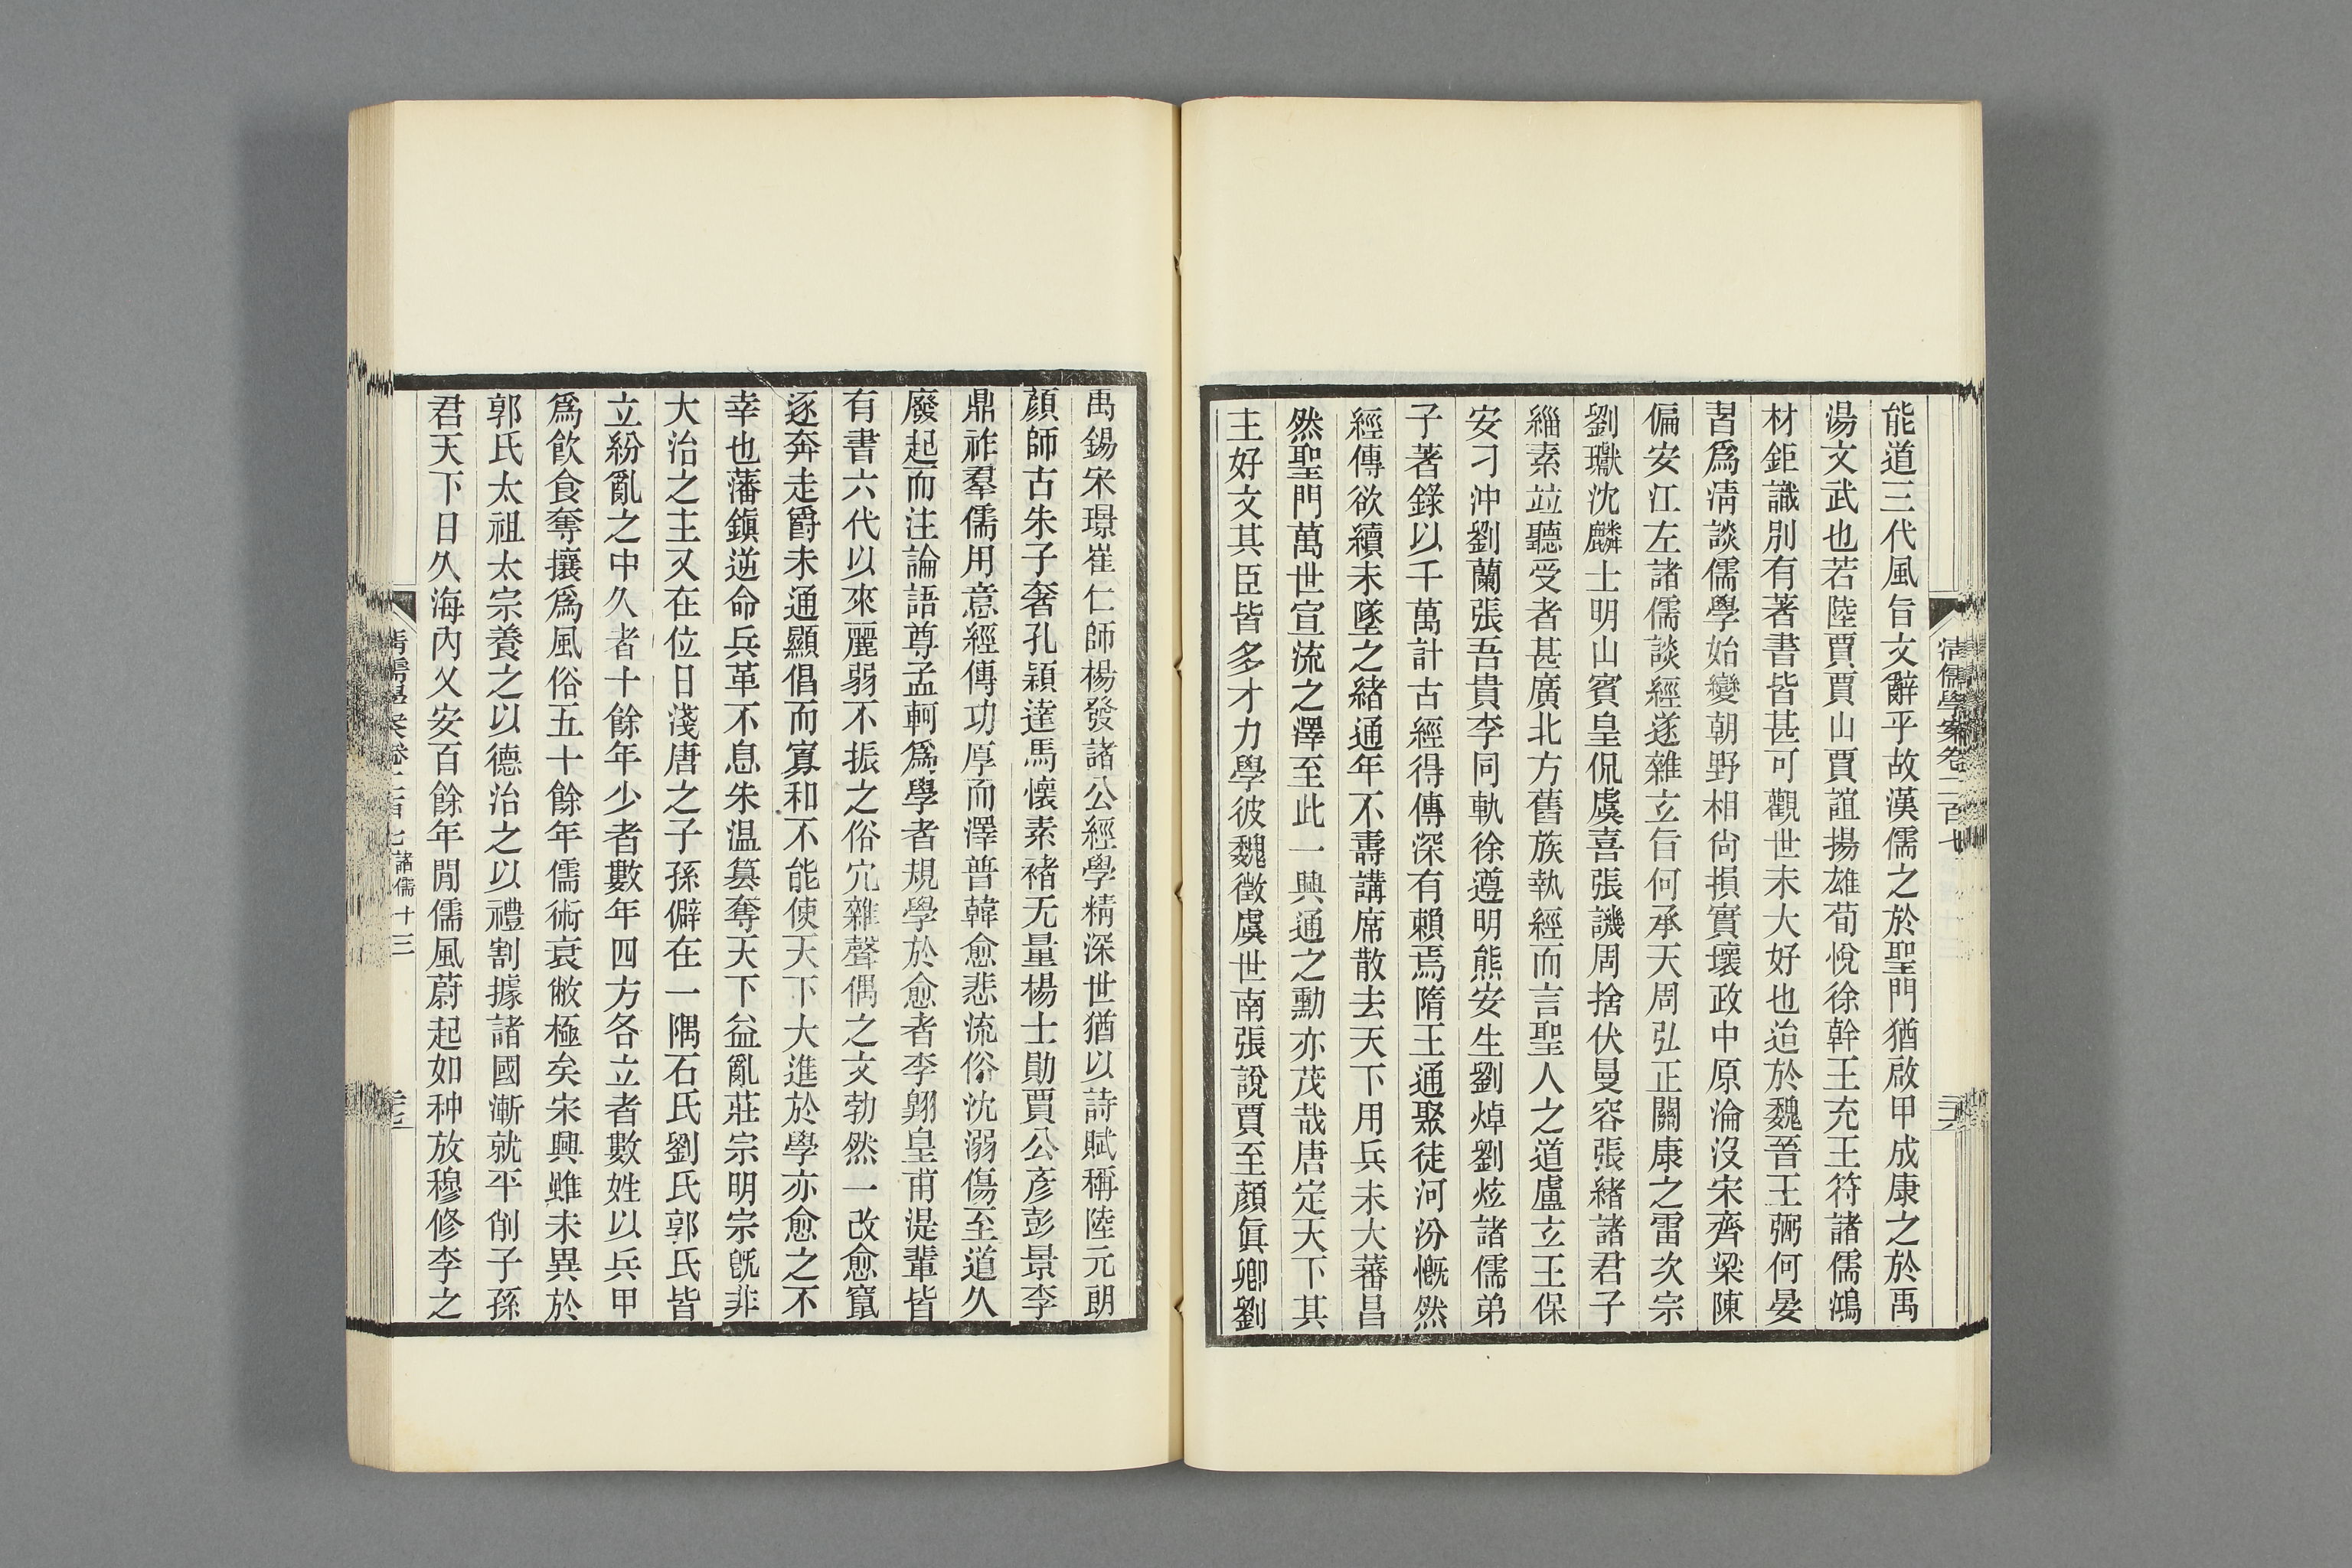 清儒學案卷二百七
能道三代風旨文辭乎故漢儒之於聖門猶啟甲成康之於禹
湯文武也若陸賈賈山賈誼揚雄荀悅徐幹王充王符諸儒鴻
材鉅識別有著書皆甚可觀世未大好也迨於魏晉王弼何晏
習爲清談儒學始變朝野相尙損實壞政中原淪沒宋齊梁陳
偏安江左諸儒談經遂雜玄旨何承天周弘正關康之雷次宗
劉瓛沈麟士明山賓皇侃虞喜張譏周捨伏曼容張緒諸君子
緇素竝聽受者甚廣北方舊族執經而言聖人之道盧玄王保
安刁沖劉蘭張吾貴李同軌徐遵明熊安生劉焯劉炫諸儒弟
子著錄以千萬計古經得傳深有賴焉隋王通聚徒河汾慨然
經傳欲續未墜之緒通年不壽講席散去天下用兵未大蕃昌
然聖門萬世宣流之澤至此一興通之勳亦茂哉唐定天下其
主好文其臣皆多才力學彼魏徵虞世南張說賈至顏眞卿劉
禹錫宋璟崔仁師楊發諸公經學精深世猶以詩賦稱陸元朗
顏師古朱子奢孔穎達馬懷素褚无量楊士勛賈公彥彭景李
鼎祚羣儒用意經傳功厚而澤普韓愈悲流俗沈溺傷至道久
廢起而注論語尊孟軻爲學者規學於愈者李翱皇甫湜輩皆
有書六代以來麗弱不振之俗宂雜聲偶之文勃然一改愈竄
逐奔走爵未通顯倡而寡和不能使天下大進於學亦愈之不
幸也藩鎭逆命兵革不息朱温篡奪天下益亂莊宗明宗旣非
大治之主又在位日淺唐之子孫僻在一隅石氏劉氏郭氏皆
立紛亂之中久者十餘年少者數年四方各立者數姓以兵甲
爲飮食奪攘爲風俗五十餘年儒術衰敝極矣宋興雖未異於
郭氏太祖太宗養之以德治之以禮割據諸國漸就平削子孫
君天下日久海內乂安百餘年閒儒風蔚起如种放穆修李之
清儒學案卷二百七 諸儒十三